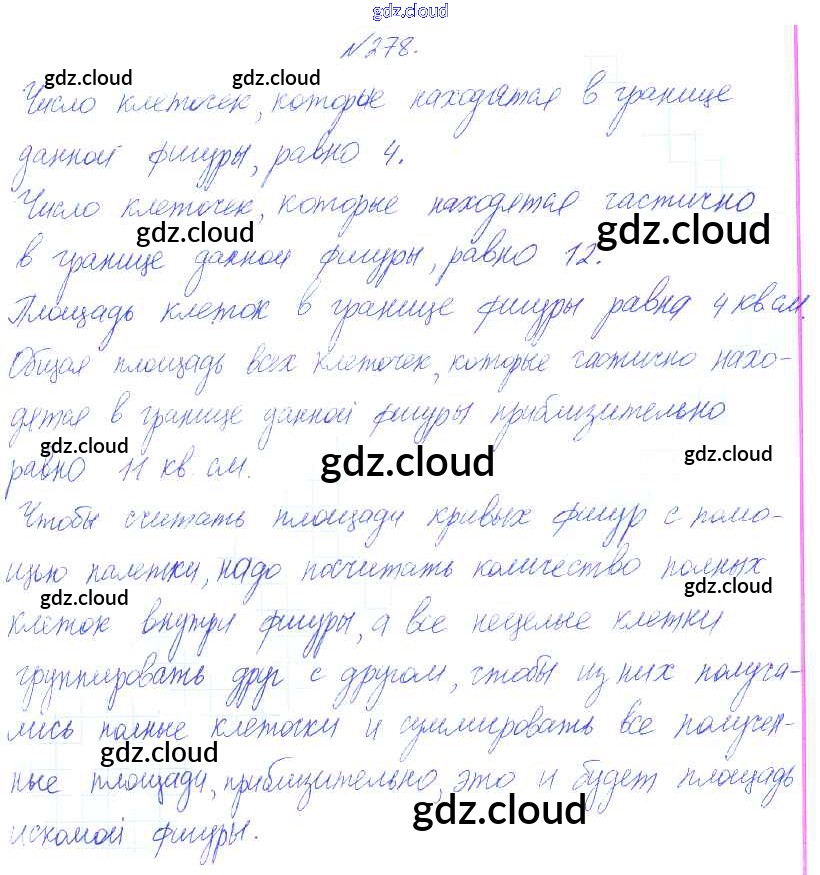 gdz.cloud
№278.
gdz.cloud gdz.cloud
Число клеточек, которые находятся в границе
данной фигуры, равно 4.
Число клеточек, которые находятся частично
gdz.cloud gdz.cloud
в границе данной фигуры, равно 12.
Площадь клеток в границе фигуры равна 4 кв.см.
Общая площадь всех клеточек, которые частично нахо-
дятся в границе данной фигуры приблизительно
gdz.cloud gdz.cloud gdz.cloud
равно 11 кв. см.
Чтобы считать площади кривых фигур с помо-
щью палетки, надо посчитать количество полных
gdz.cloud gdz.cloud
клеток внутри фигуры, а все нецелые клетки
группировать друг с другом, чтобы из них получа-
лись полные клеточки и суммировать все получен-
gdz.cloud
ные площади, приблизительно, это и будет площадь
gdz.cloud
искомой фигуры.